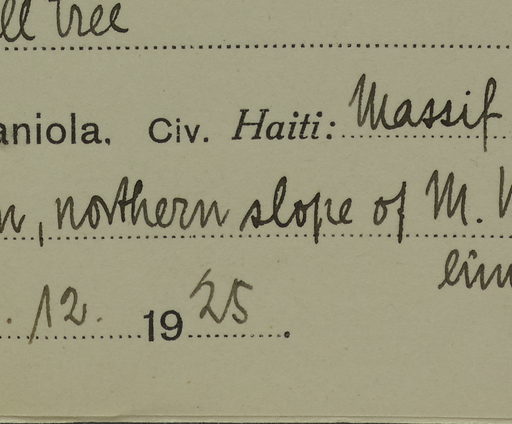 ll tree
aniola. Civ. Haiti: Massif
n, northern slope of M.
. 12. 1925.